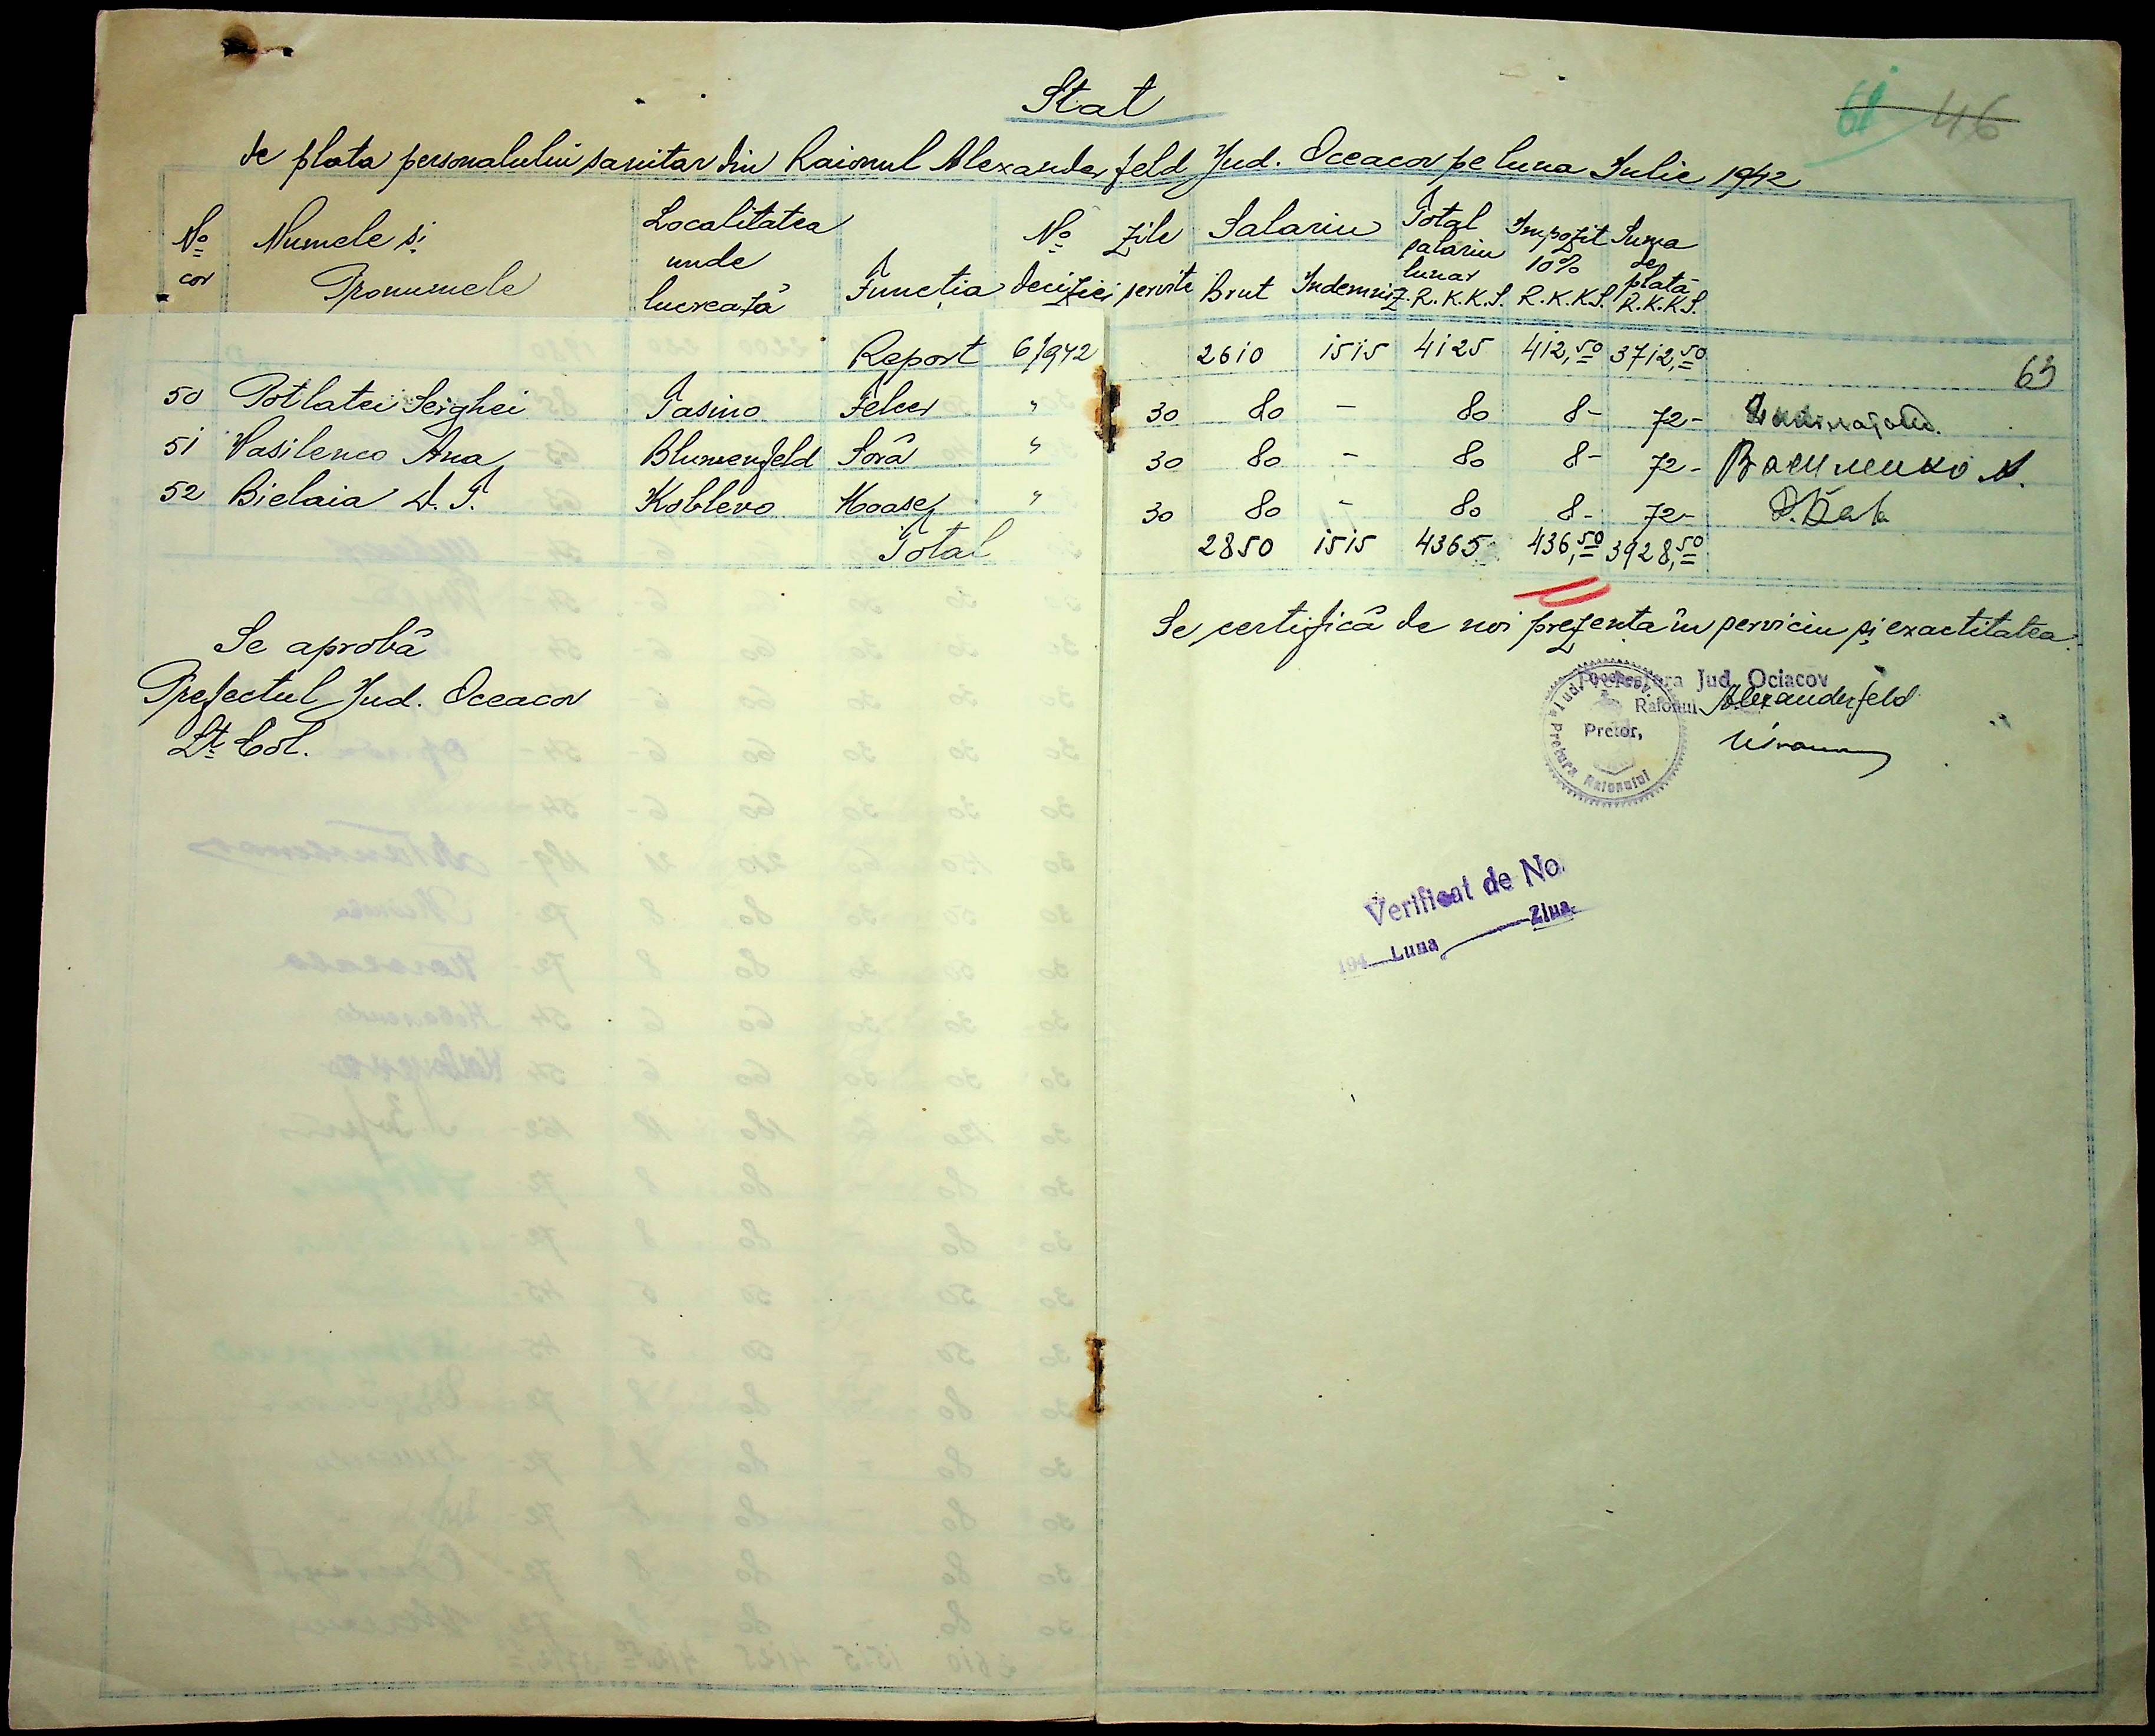 Stat
61 46
de plata personalului sanitar din Raionul Alexanderfeld Jud. Oceacov pe luna Iulie 1942
No cor Numele și Pronumele Localitatea unde lucrează Funcția No deciziei Zile servite Salariu Brut Indemniz. Total salariu lunar R.K.K.S. Impozit 10% R.K.K.S. Suma de plată R.K.K.S.
Report 6/942 2610 1515 4125 412,50 3712,50
63
50 Potlatei Serghei Tasino Felcer " 30 80 - 80 8- 72-
51 Vasilenco Ana Blumenfeld Soră " 30 80 - 80 8- 72- Василенко А.
52 Bielaia D. T. Koblevo Moașe " 30 80 - 80 8- 72-
Total 2850 1515 4365 436,50 3928,50
Se certifică de noi prezența în serviciu și exactitatea.
Se aprobă
Prefectul Jud. Oceacov
Lt. Col.
Jud. Ociacov
Raionul Alexanderfeld
Pretor,
Pretura Raionului
Verificat de No.
194 Luna Ziua